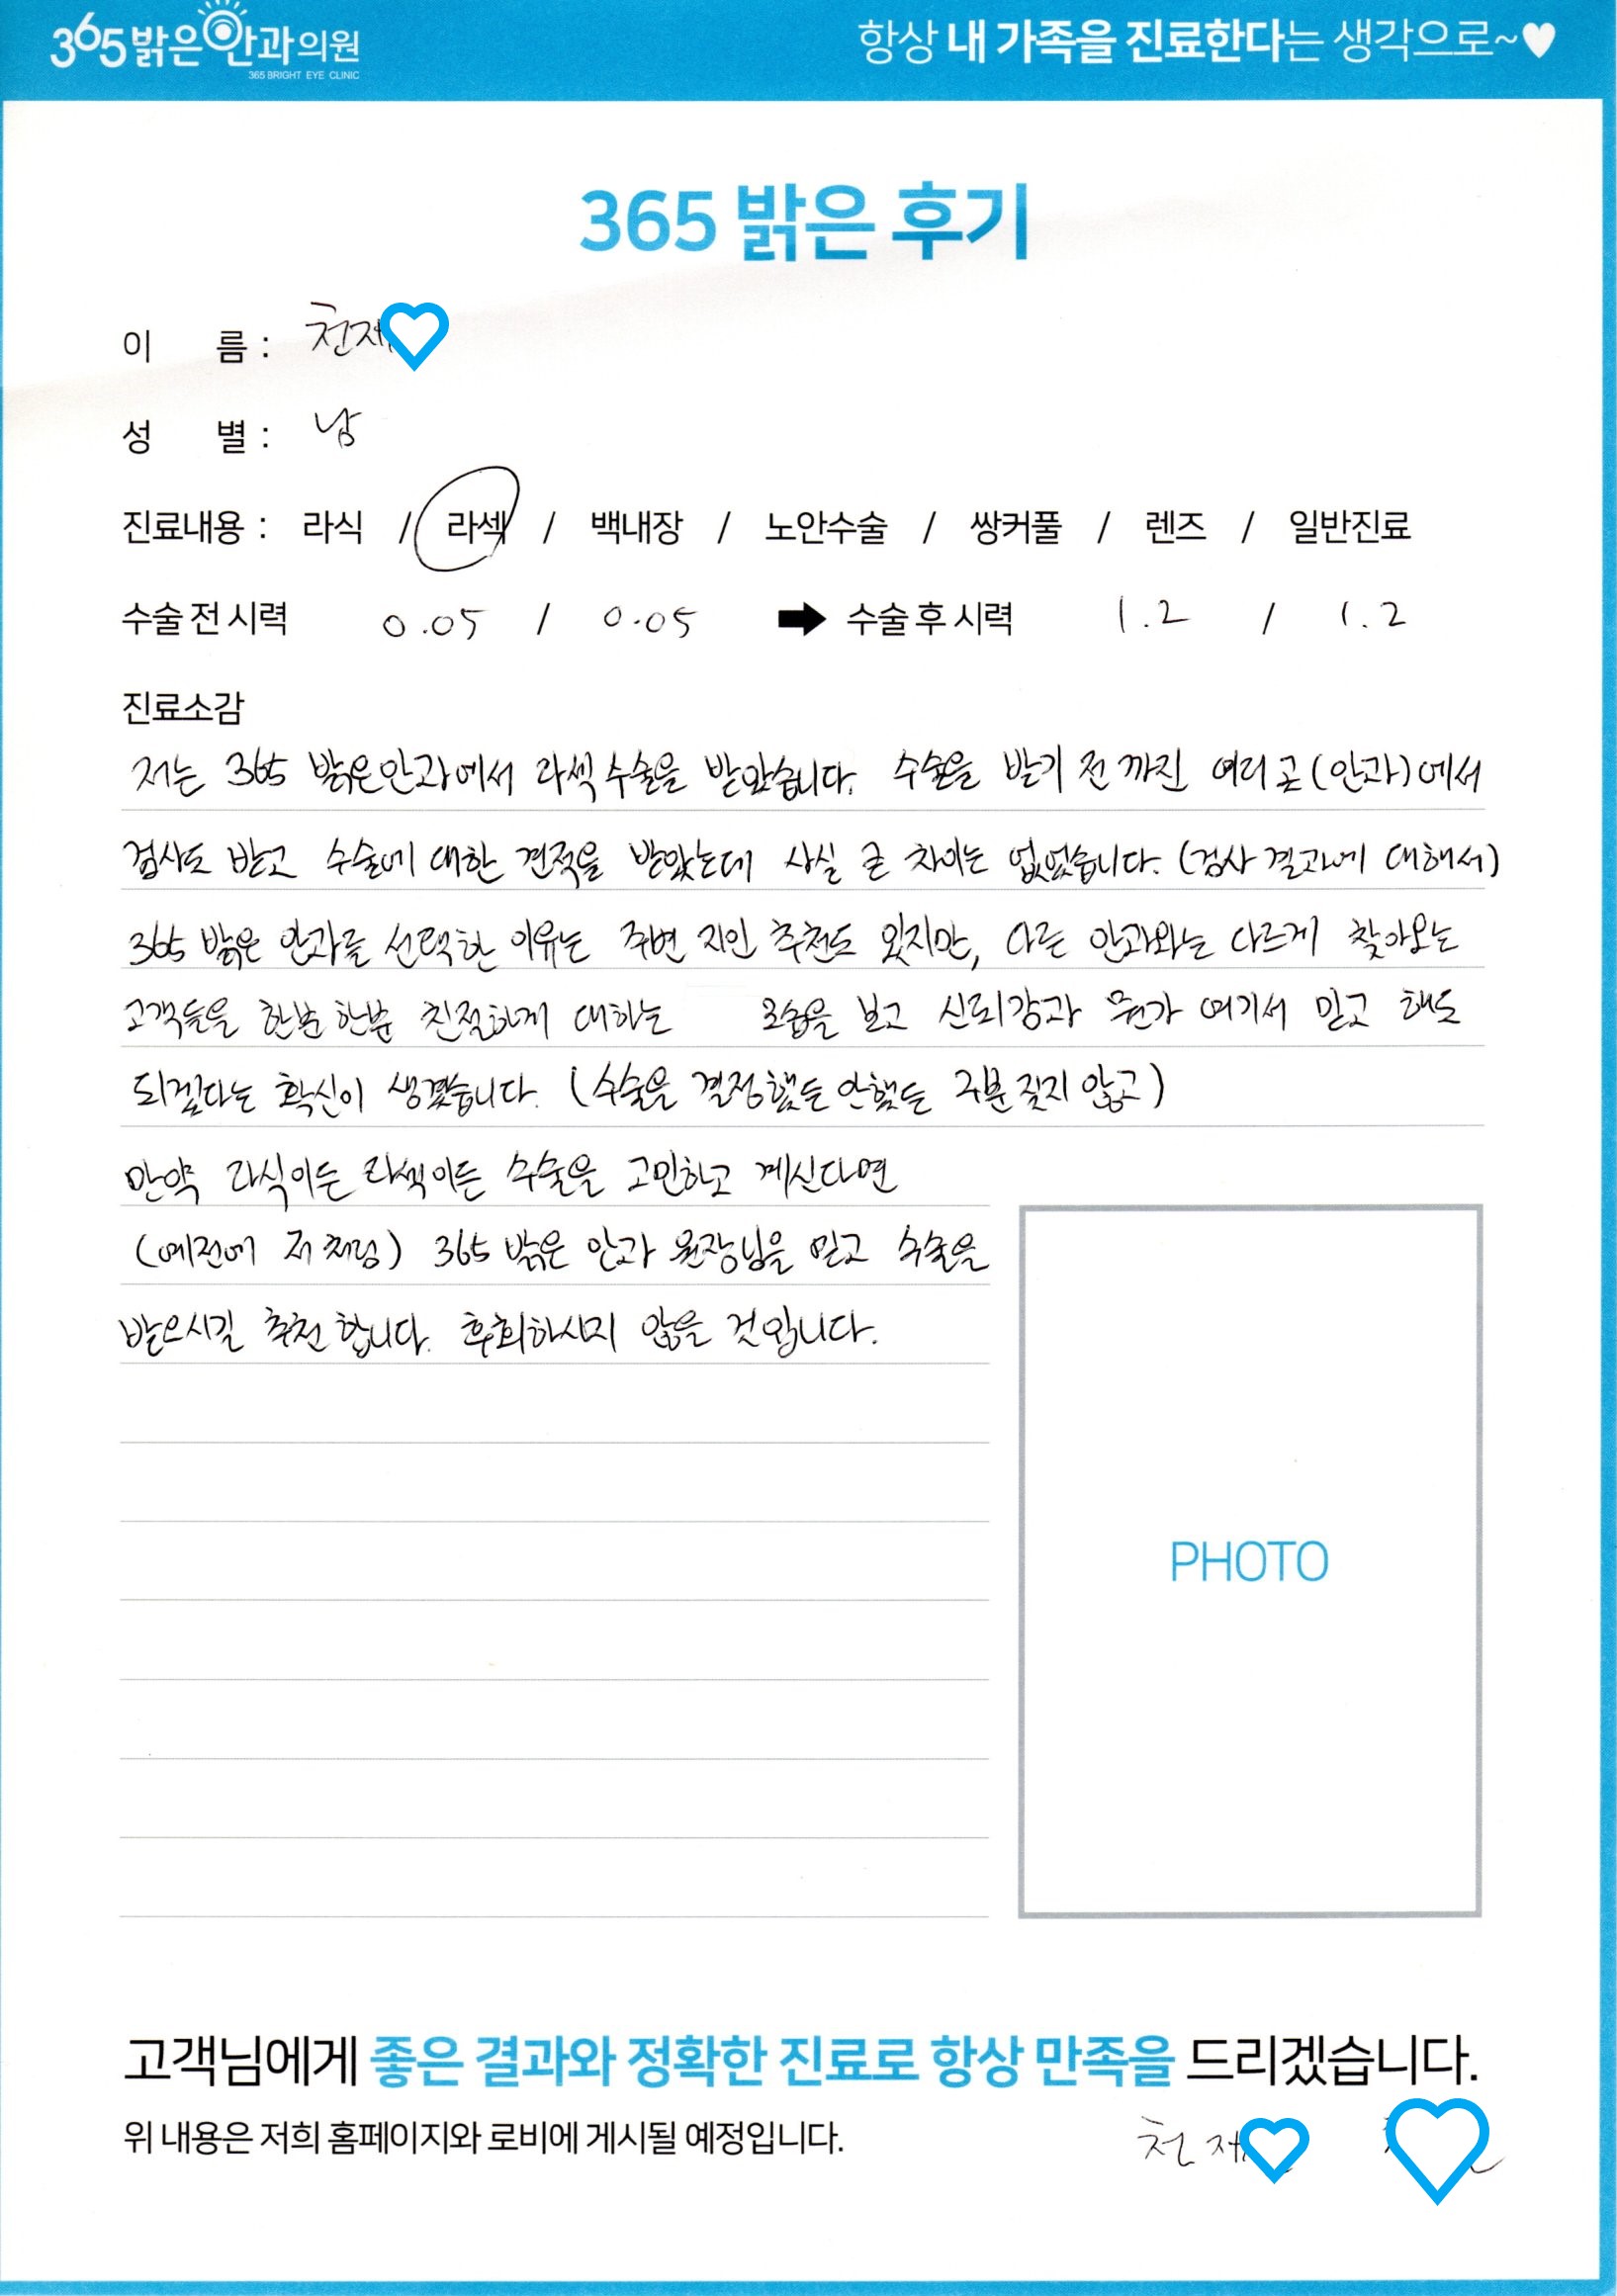 365밝은안과의원
365 BRIGHT EYE CLINIC
항상 내 가족을 진료한다는 생각으로~♥
365 밝은 후기
이 름 : 천재
성 별 : 남
진료내용 : 라식 / 라섹 / 백내장 / 노안수술 / 쌍커풀 / 렌즈 / 일반진료
수술 전 시력 0.05 / 0.05 ➡ 수술 후 시력 1.2 / 1.2
진료소감
저는 365 밝은안과에서 라섹 수술을 받았습니다. 수술을 받기 전 까진 여러 곳(안과)에서
검사도 받고 수술에 대한 견적을 받았는데 사실 큰 차이는 없었습니다. (검사 결과에 대해서)
365 밝은 안과를 선택한 이유는 주변 지인 추천도 있지만, 다른 안과와는 다르게 찾아오는
고객들을 한분 한분 친절하게 대하는 모습을 보고 신뢰감과 뭔가 여기서 믿고 해도
되겠다는 확신이 생겼습니다. (수술을 결정했든 안했든 구분 짓지 않고)
만약 라식이든 라섹이든 수술을 고민하고 계신다면
(예전에 저 처럼) 365 밝은 안과 원장님을 믿고 수술을
받으시길 추천 합니다. 후회하시지 않을 것입니다.
PHOTO
고객님에게 좋은 결과와 정확한 진료로 항상 만족을 드리겠습니다.
위 내용은 저희 홈페이지와 로비에 게시될 예정입니다.
천 재